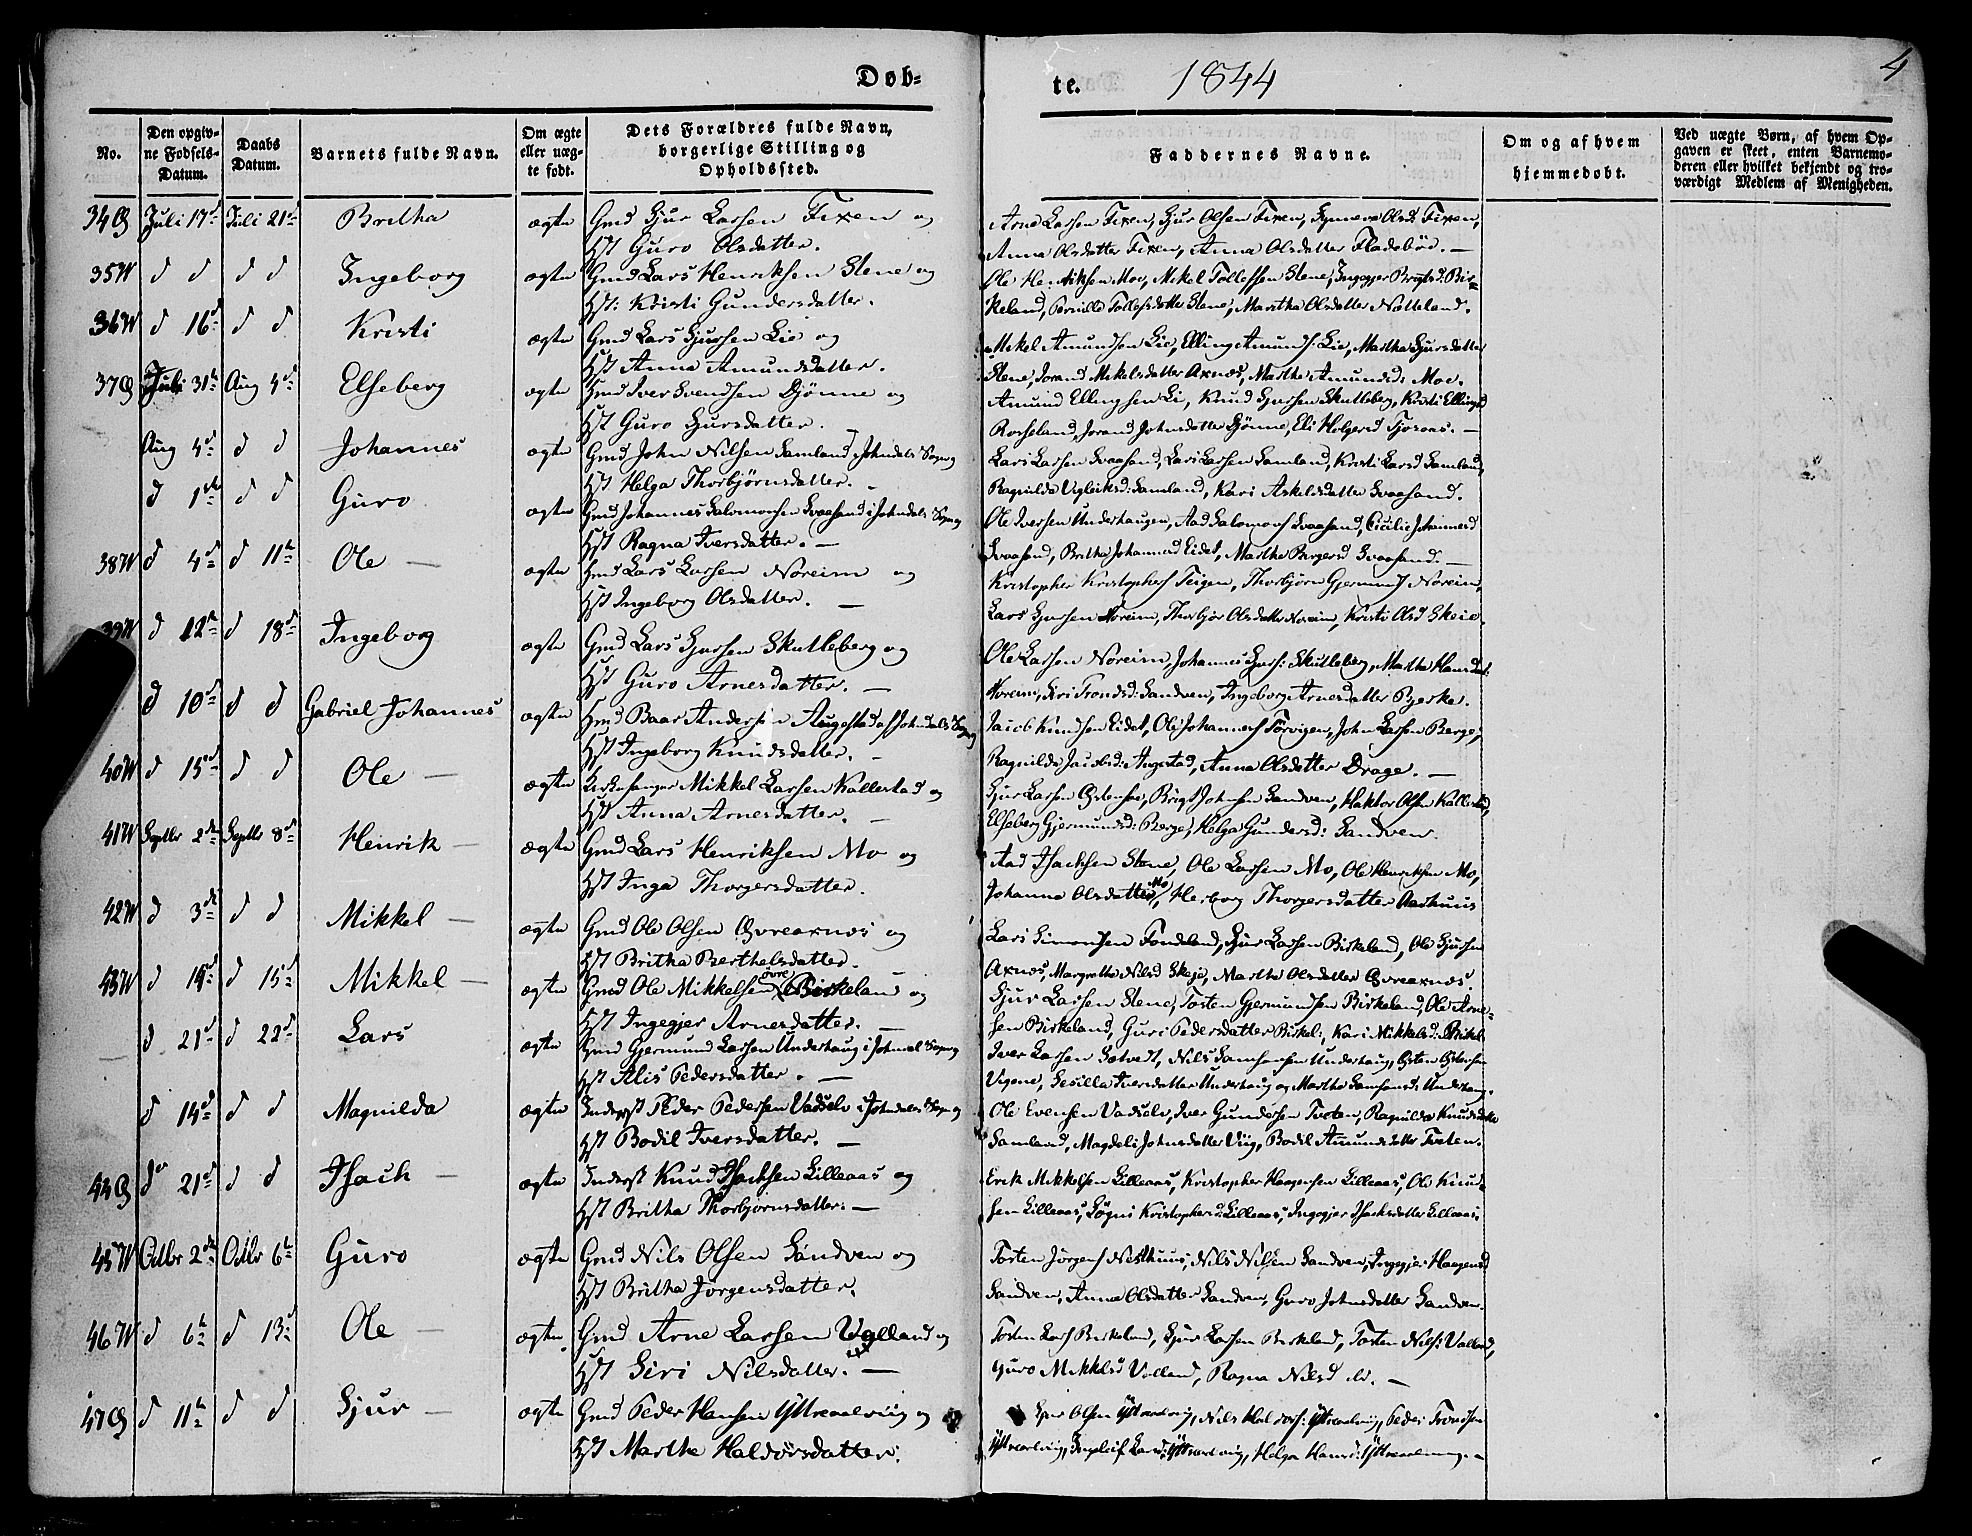 4
Døb-
te. 1844
No.
Den opgiv-
ne Fødsels-
Datum.
Daabs
Datum.
Barnets fulde Navn.
Om ægte
eller uæg-
te født.
Dets Forældres fulde Navn,
borgerlige Stilling og
Opholdssted.
Faddernes Navne.
Om og af hvem
hjemmedøbt.
Ved uægte Børn, af hvem Op-
gaven er skeet, enten Barnemo-
deren eller hvilket bekjendt og tro-
værdigt Medlem af Menigheden.
34 Juli 17 Juli 21 Britha ægte Gmd Sjur Larsen Fixen og
Hst Guro Olsdatter.
Arne Larsen Fixen, Sjur Olsen Fixen, Synneva Olsd. Fixen,
Anna Olsdatter Fixen, Anna Olsdatter Fladebøe. —
35W d d d d Ingeborg ægte Gmd Lars Henriksen Stene og
Hst: Kristi Gundersdatter.
Ole Henriksen Moe, Mikel Tollefsen Stene, Bir-
keland, Pernille Tollefsdatter Stene, Martha Olsdatter Netteland.
36W d 16 d d Kristi ægte Gmd Lars Sjursen Lie og
Hst Anna Amundsdatter.
Mikel Amundsen Lie, Elling Amunds: Lie, Martha Sjursdatter
Stene, Jorand Mikelsdatter Axnæs, Martha Amundsd: Moe.
37 Juli 31 Aug 4 Elseberg ægte Gmd Iver Svendsen Djønne og
Hst Guro Sjursdatter.
Amund Ellingsen Li, Knud Sjursen Skutleberg, Kristi Ellingsd
Rosseland, Jorand Johnsdatter Djønne, Eli Holgersd
Aug 4 d d Johannes ægte Gmd John Nilsen Samland i Johndals Sogn og
Hst Helga Thorbjørnsdatter. —
Lars Larsen Svaasand, Lars Larsen Samland, Kristi Larsd Samland,
Ragnilda Vigleiksd: Samland, Kari Askelsdatter Svaasand.
d 1 d d Guro ægte Gmd Johannes Salomonsen Svaasand i Johndals Sogn og
Hst Ragna Iversdatter. —
Ole Iversen Underhaugen, Aad Salomons Svaasand, Cicilie Johannesd
Svaasand, Britha Johannesd Eidet, Martha Birgersd Svaasand. —
38W d 4 d 11 Ole — ægte Gmd Lars Larsen Noreim og
Hst Ingeborg Olsdatter. —
Kristopher Kristophers Teigen, Thorbjørn Gjermunds Noreim,
Lars Sjursen Noreim, Thorbjør Olsdatter Noreim, Kristi Olsd Skeie.
39W d 12 d 18 Ingeborg ægte Gmd Lars Sjursen Skutleberg og
Hst Guro Arnesdatter. —
Ole Larsen Noreim, Johannes Sjurs: Skutleberg, Martha
Noreim, Siri Trondsd: Sandven, Ingeborg Arnesdatter Bjerke.
d 10 d d Gabriel Johannes ægte Gmd Baar Andersen Augestad af Johndals Sogn og
Hst Ingeborg Knudsdatter. —
Jacob Knudsen Eidet, Ole Johannes Torvigen, John Larsen Berge,
Ragnilda Jacobsd: Augestad, Anna Olsdatter Drage. —
40W d 15 d d Ole — ægte Kirkesanger Mikkel Larsen Kallestad og
Hst Anna Arnesdatter. —
Sjur Larsen Østensøe, Brigt Johnsen Sandven, Haktor Olsen Kallestad,
Elseberg Gjermundsd: Berge, Helga Gundersd: Sandven
41W Septbr 2 Septbr 8 Henrik — ægte Gmd Lars Henriksen Mo og
Hst Inga Thorgersdatter.
Aad Isachsen Stene, Ole Larsen Mo, Ole Henriksen Mo,
Johanna Olsdatter Mo, Herborg Thorgersdatter Aarhuus
42W d 3 d d Mikkel — ægte Gmd Ole Olsen Øvreaxnæs og
Hst Britha Berthelsdatter. —
Lars Simonsen Tondeland, Sjur Larsen Birkeland, Ole Sjursen
Axnæs, Margretha Nilsd Skeje, Martha Olsdatter Øvreaxnæs.
43W d 14 d 15 Mikkel — ægte Gmd Ole Mikkelsen øvre Birkeland og
Hst Ingegjer Arnesdatter. —
Sjur Larsen Stene, Torsten Gjermundsen Birkeland, Ole Arne-
sen Birkeland, Guri Pedersdatter Birkel:, Kari Mikkelsd: Birkel
d 21 d 22 Lars ægte Gmd Gjermund Larsen Underhaug i Johndal Sogn og
Hst Alis Pedersdatter. —
Iver Larsen Solvedt, Nils Samsonsen Underhaug, Østen Østensen
Vigene, Sesilla Iversdatter Underhaug og Martha Samsonsd: Underhaug.
d 14 d d Magnilda ægte Inderst Peder Pedersen Vadselv i Johndals Sogn og
Hst Bodil Iversdatter. —
Ole Evensen Vadselv, Iver Gundersen Tveten, Ragnilda Knudsdatter
Samland, Magdeli Johnsdatter Viig, Bodil Amundsdatter Tveten.
44 d 21 d d Isach — ægte Inderst Knud Isachsen Lilleaas og
Hst Britha Thorbjørnsdatter. —
Erik Mikkelsen Lilleaas, Kristopher Haagensen Lilleaas, Ole Knud-
sen Lilleaas, Søgni Kristophersd: Lilleaas, Ingegjer Isachsdatter Lilleaas.
45W Octbr 2 Octbr 6 Guro ægte Gmd Nils Olsen Sandven og
Hst Britha Jørgensdatter.
Torsten Jørgens Nesthuus, Nils Nilsen Sandven, Ingegjer Haagensd
Sandven, Anna Olsdatter Sandven, Guro Johnsdatter Sandven.
46W d 6 d 13 Ole — ægte Gmd Arne Larsen Volland og
Hst Siri Nilsdatter. —
Torsten Lars Birkeland, Sjur Larsen Birkeland, Torsten Nils: Volland,
Guro Mikkelsd Volland, Ragna Nilsd ib. —
47 d 11 d d Sjur — ægte Gmd Peder Hansen Yttreaalvig og
Hst Martha Haldorsdatter.
Sjur Olsen Yttreaalvig, Nils Haldors: Yttreaalvig, Peder Trondsen
Yttreaalvig, Yttreaalvig, Helga Hansd: Yttreaalvig. —